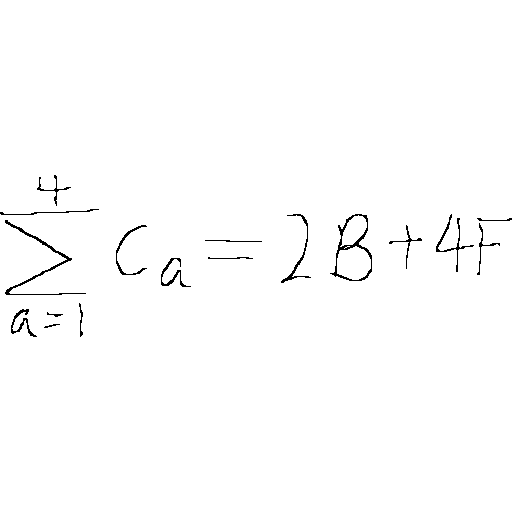 \sum_{a=1}^{4} C_a = 2B + 4F